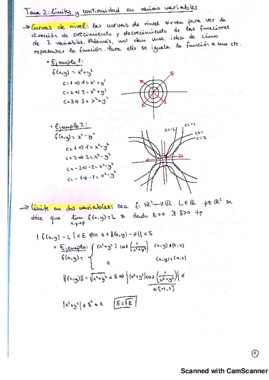 Tema 2: Límites y continuidad en varias variables
→ Curvas de nivel: las curvas de nivel sirven para ver la
dirección de crecimiento y decrecimiento de las funciones
de 2 variables. Además, nos dan una idea de cómo
representar la función. Para ello se iguala la función a una cte.
• Ejemplo 1:
f(x,y) = x²+y²
C=1 → 1 = x²+y²
C=2 → 2 = x²+y²
C=3 → 3 = x²+y²
• Ejemplo 2:
f(x,y) = x²-y²
C=1 → 1 = x²-y²
C=2 → 2 = x²-y²
C=-2 → -2 = x²-y²
C=-1 → -1 = x²-y²
→ Límite en dos variables: sea f: ℝ² → ℝ L∈ℝ p∈ℝ² se
dice que lim f(x,y) = L si dado ε>0 ∃ δ>0 tq
x→p
|f(x,y) - L| < ε 0 < ‖(x,y) - p‖ < δ
• Ejemplo:
f(x,y) = (x²+y²) cos (x,y) ≠ (0,0)
0 (x,y) = (0,0)
‖(x,y)‖ = √x²+y² < δ ⇒
∈[-1,1]
|x²+y²| ≤ δ² < ε δ = √ε
1
Scanned with CamScanner